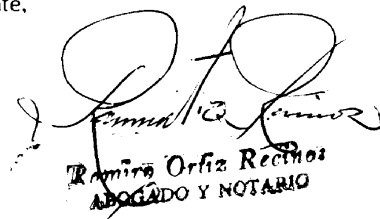 te.
Ramiro Ortiz Recinos
ABOGADO Y NOTARIO